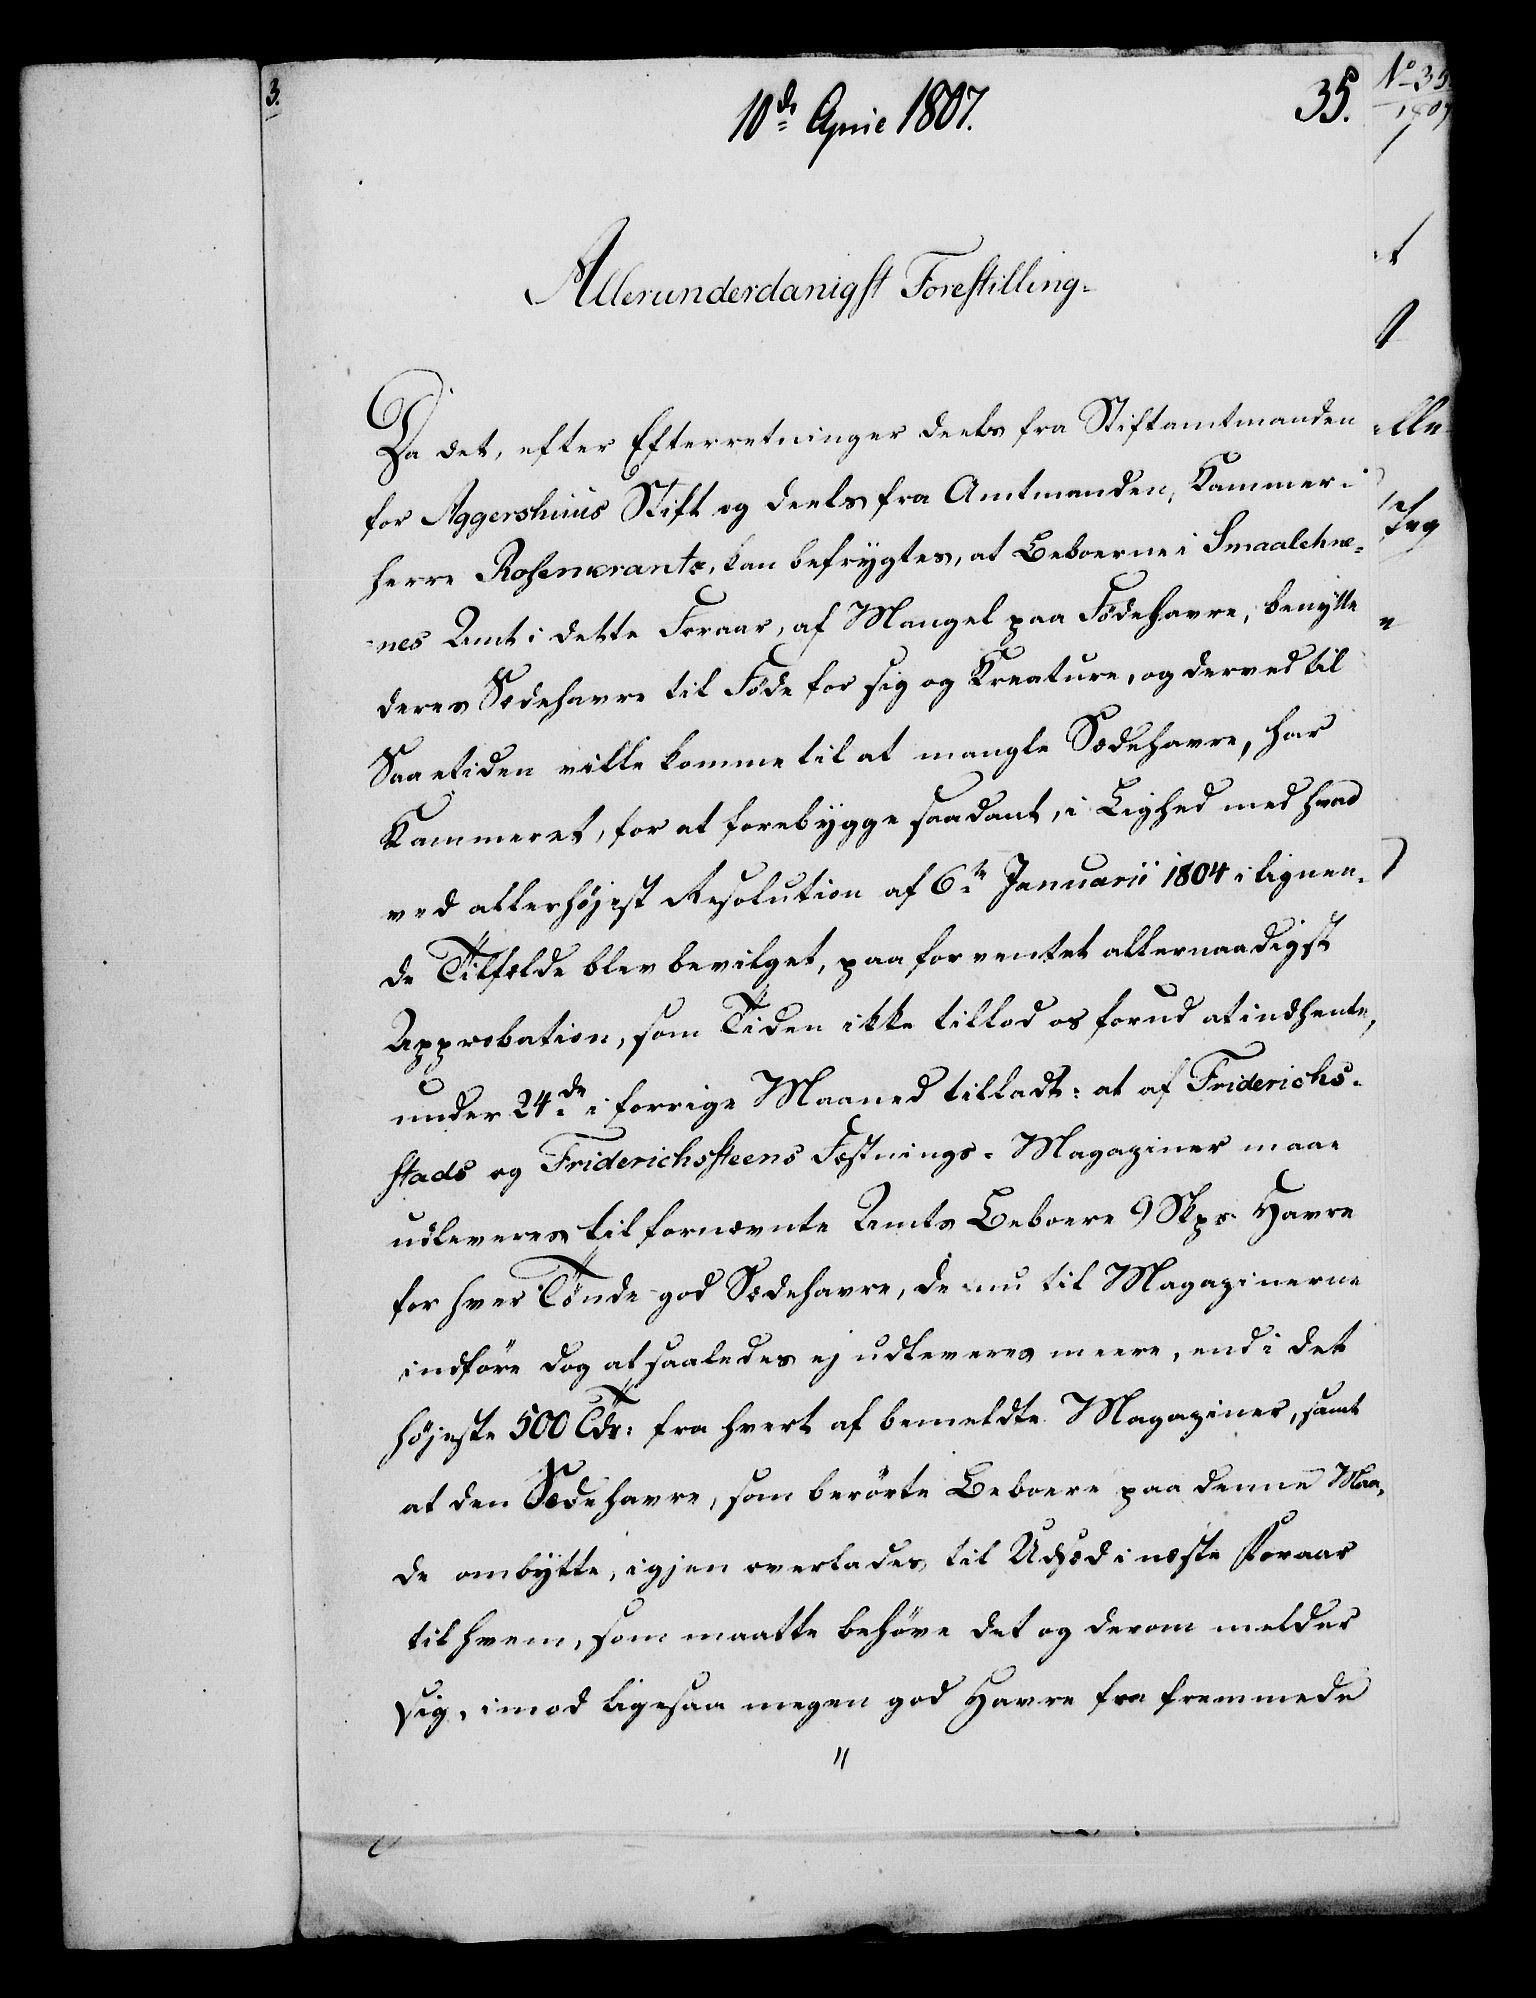 3.
10de April 1807.
35.
No 35
1807
Allerunderdanigst Forestilling.
Da det, efter Efterretninger deels fra Stiftamtmanden
for Aggershuus Stift og deels fra Amtmanden, Kammer-
herre Rosencrantz, kan befrygtes, at Beboerne i Smaalehne-
nes Amt i dette Foraar, af Mangel paa Födehavre, benytte
deres Sædehavre til Föde for sig og Kreature, og derved til
Saaetiden ville komme til at mangle Sædehavre, har
Kammeret, for at forebygge saadant, i Lighed med hvad
ved allerhøjest Resolution af 6te Januarii 1804 i lignen-
de Tilfælde blev bevilget, paa forventet allernaadigst
Approbation, som Tiden ikke tillod os forud at indhente,
under 24de i forrige Maaned tilladt: at af Friderichs-
stads og Friderichssteens Fæstnings-Magaziner maae
udleveres til fornævnte Amts Beboere 9 Skpr Havre
for hver Tönde god Sædehavre, de nu til Magazinerne
indföre dog at saaledes ej udleveres meere, end i det
højeste 500 Tdr: fra hvert af bemeldte Magaziner, samt
at den Sædehavre, som berörte Beboere paa denne Maa-
de ombytte, igjen overlades til Udsæd i næste Foraar
til hvem, som maatte behöve det og derom melder
sig, imod ligesaa megen god Havre fra fremmede
"